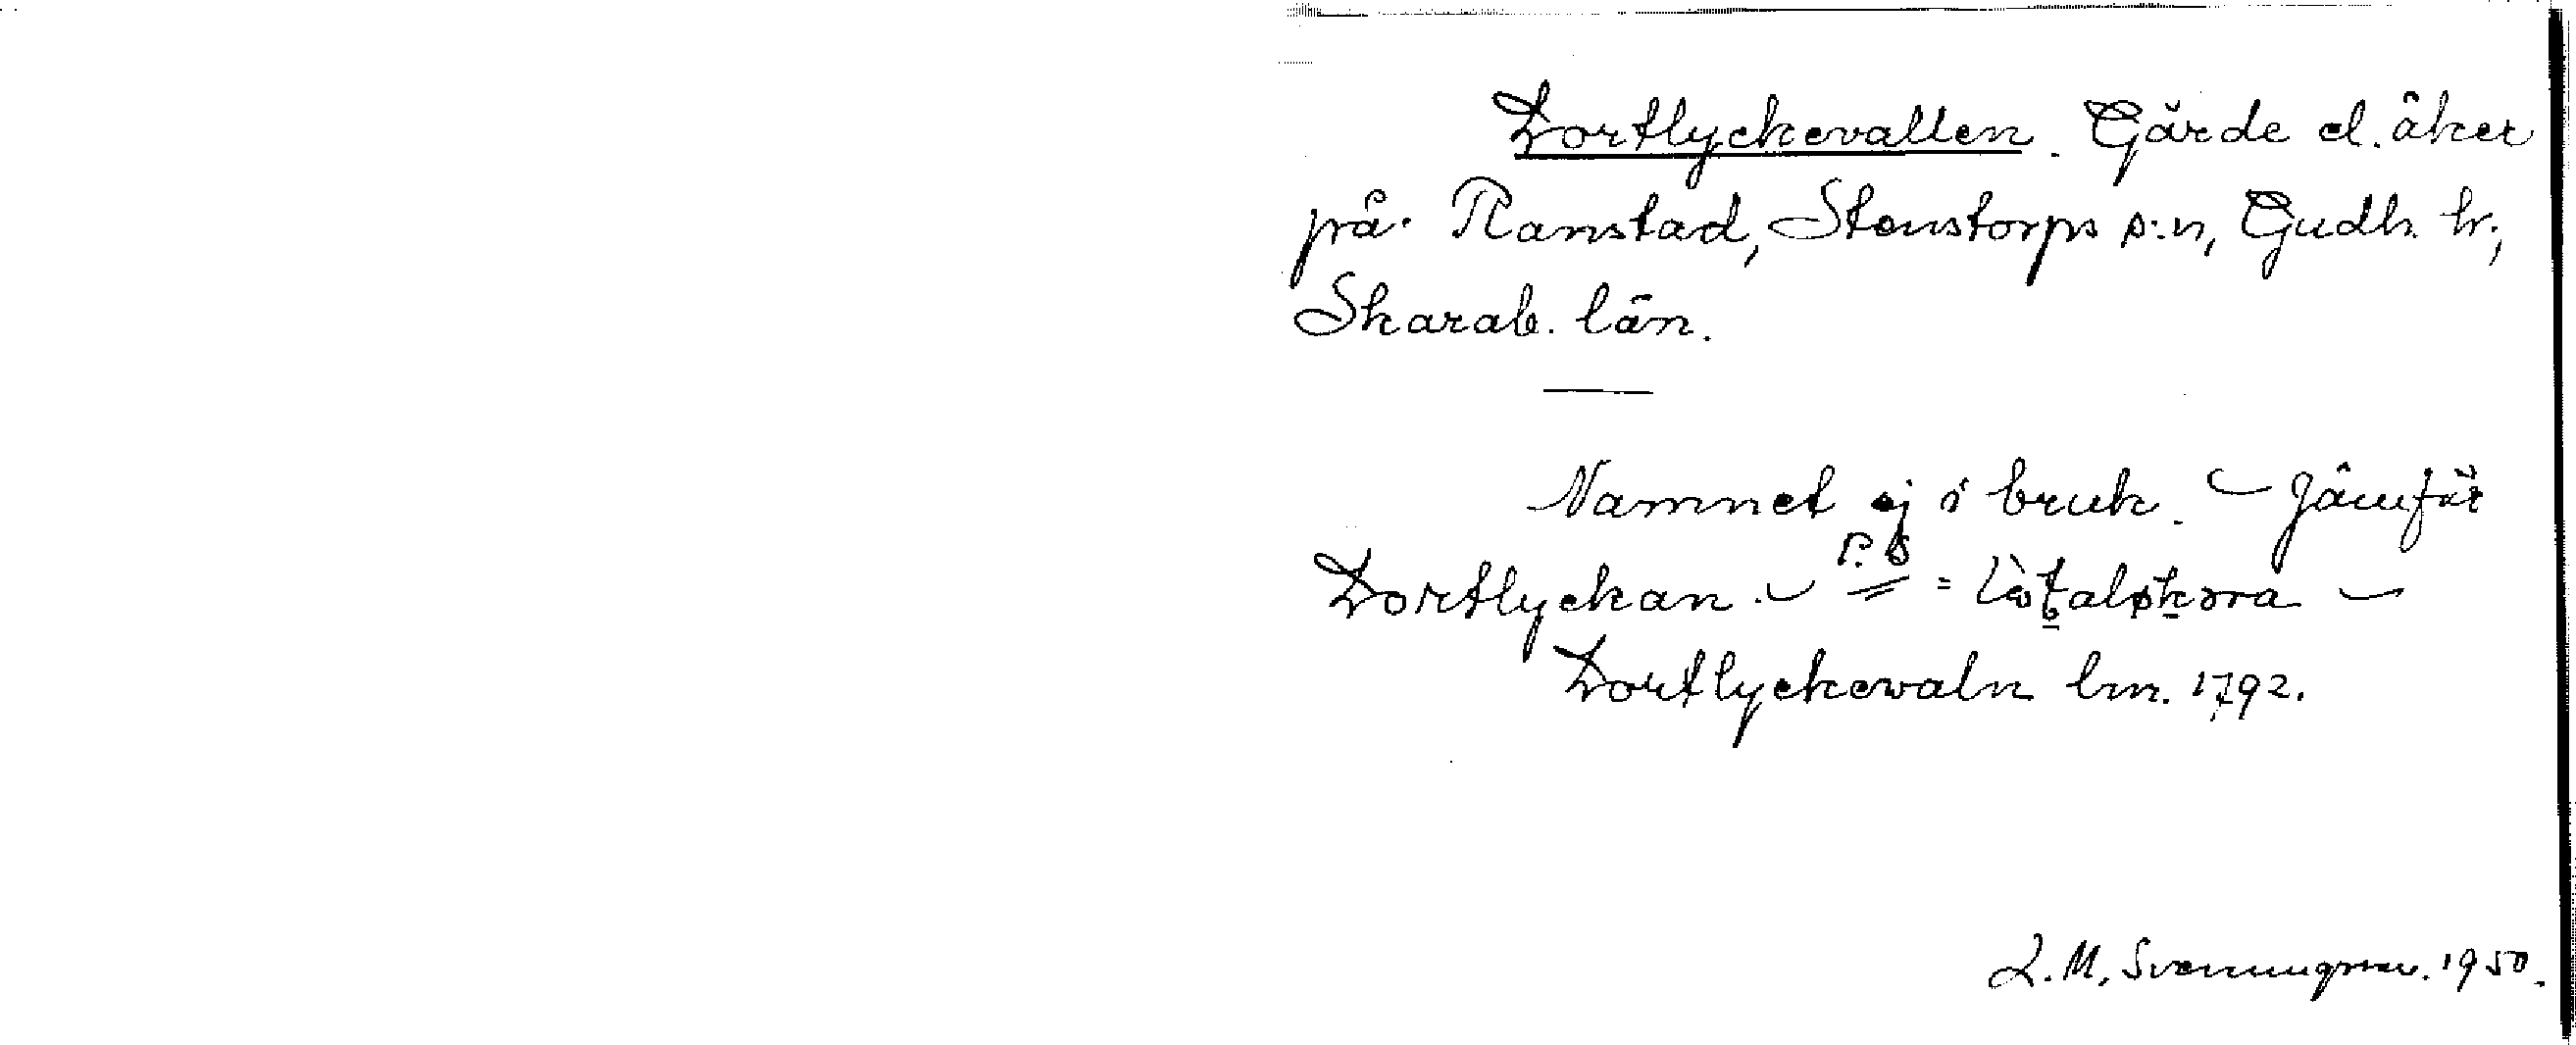 Dortlyckevallen. Gärde el. åker
på Ranstad, Stenstorps s:n, Gudh. hr.,
Skarab. län.
Namnet ej i bruk. — Jämför
Dortlyckan. —
Dortlyckewaln lm. 1792.
L. M. Svenungsson. 1950.